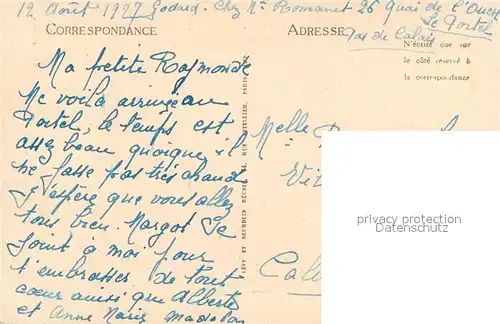 12 Août 1927 Godard. Chez Mr Romanet 26 Quai de l'Ouest
Le Portel
Pas de Calais
CORRESPONDANCE
ADRESSE
N'écrire que sur
le côté réservé à
la correspondance
Ma petite Raymonde
Me voilà arrivée au
Portel, le temps est
assez beau quoique il
ne fasse pas très chaud
J'espère que vous allez
tous bien. Margot se
joint à moi pour
t'embrasser de tout
cœur ainsi que Alberte
et Anne Marie
LÉVY ET NEURDEIN RÉUNIS, 44, RUE LETELLIER, PARIS
Melle
privacy protection
AK / Ansichtskarten